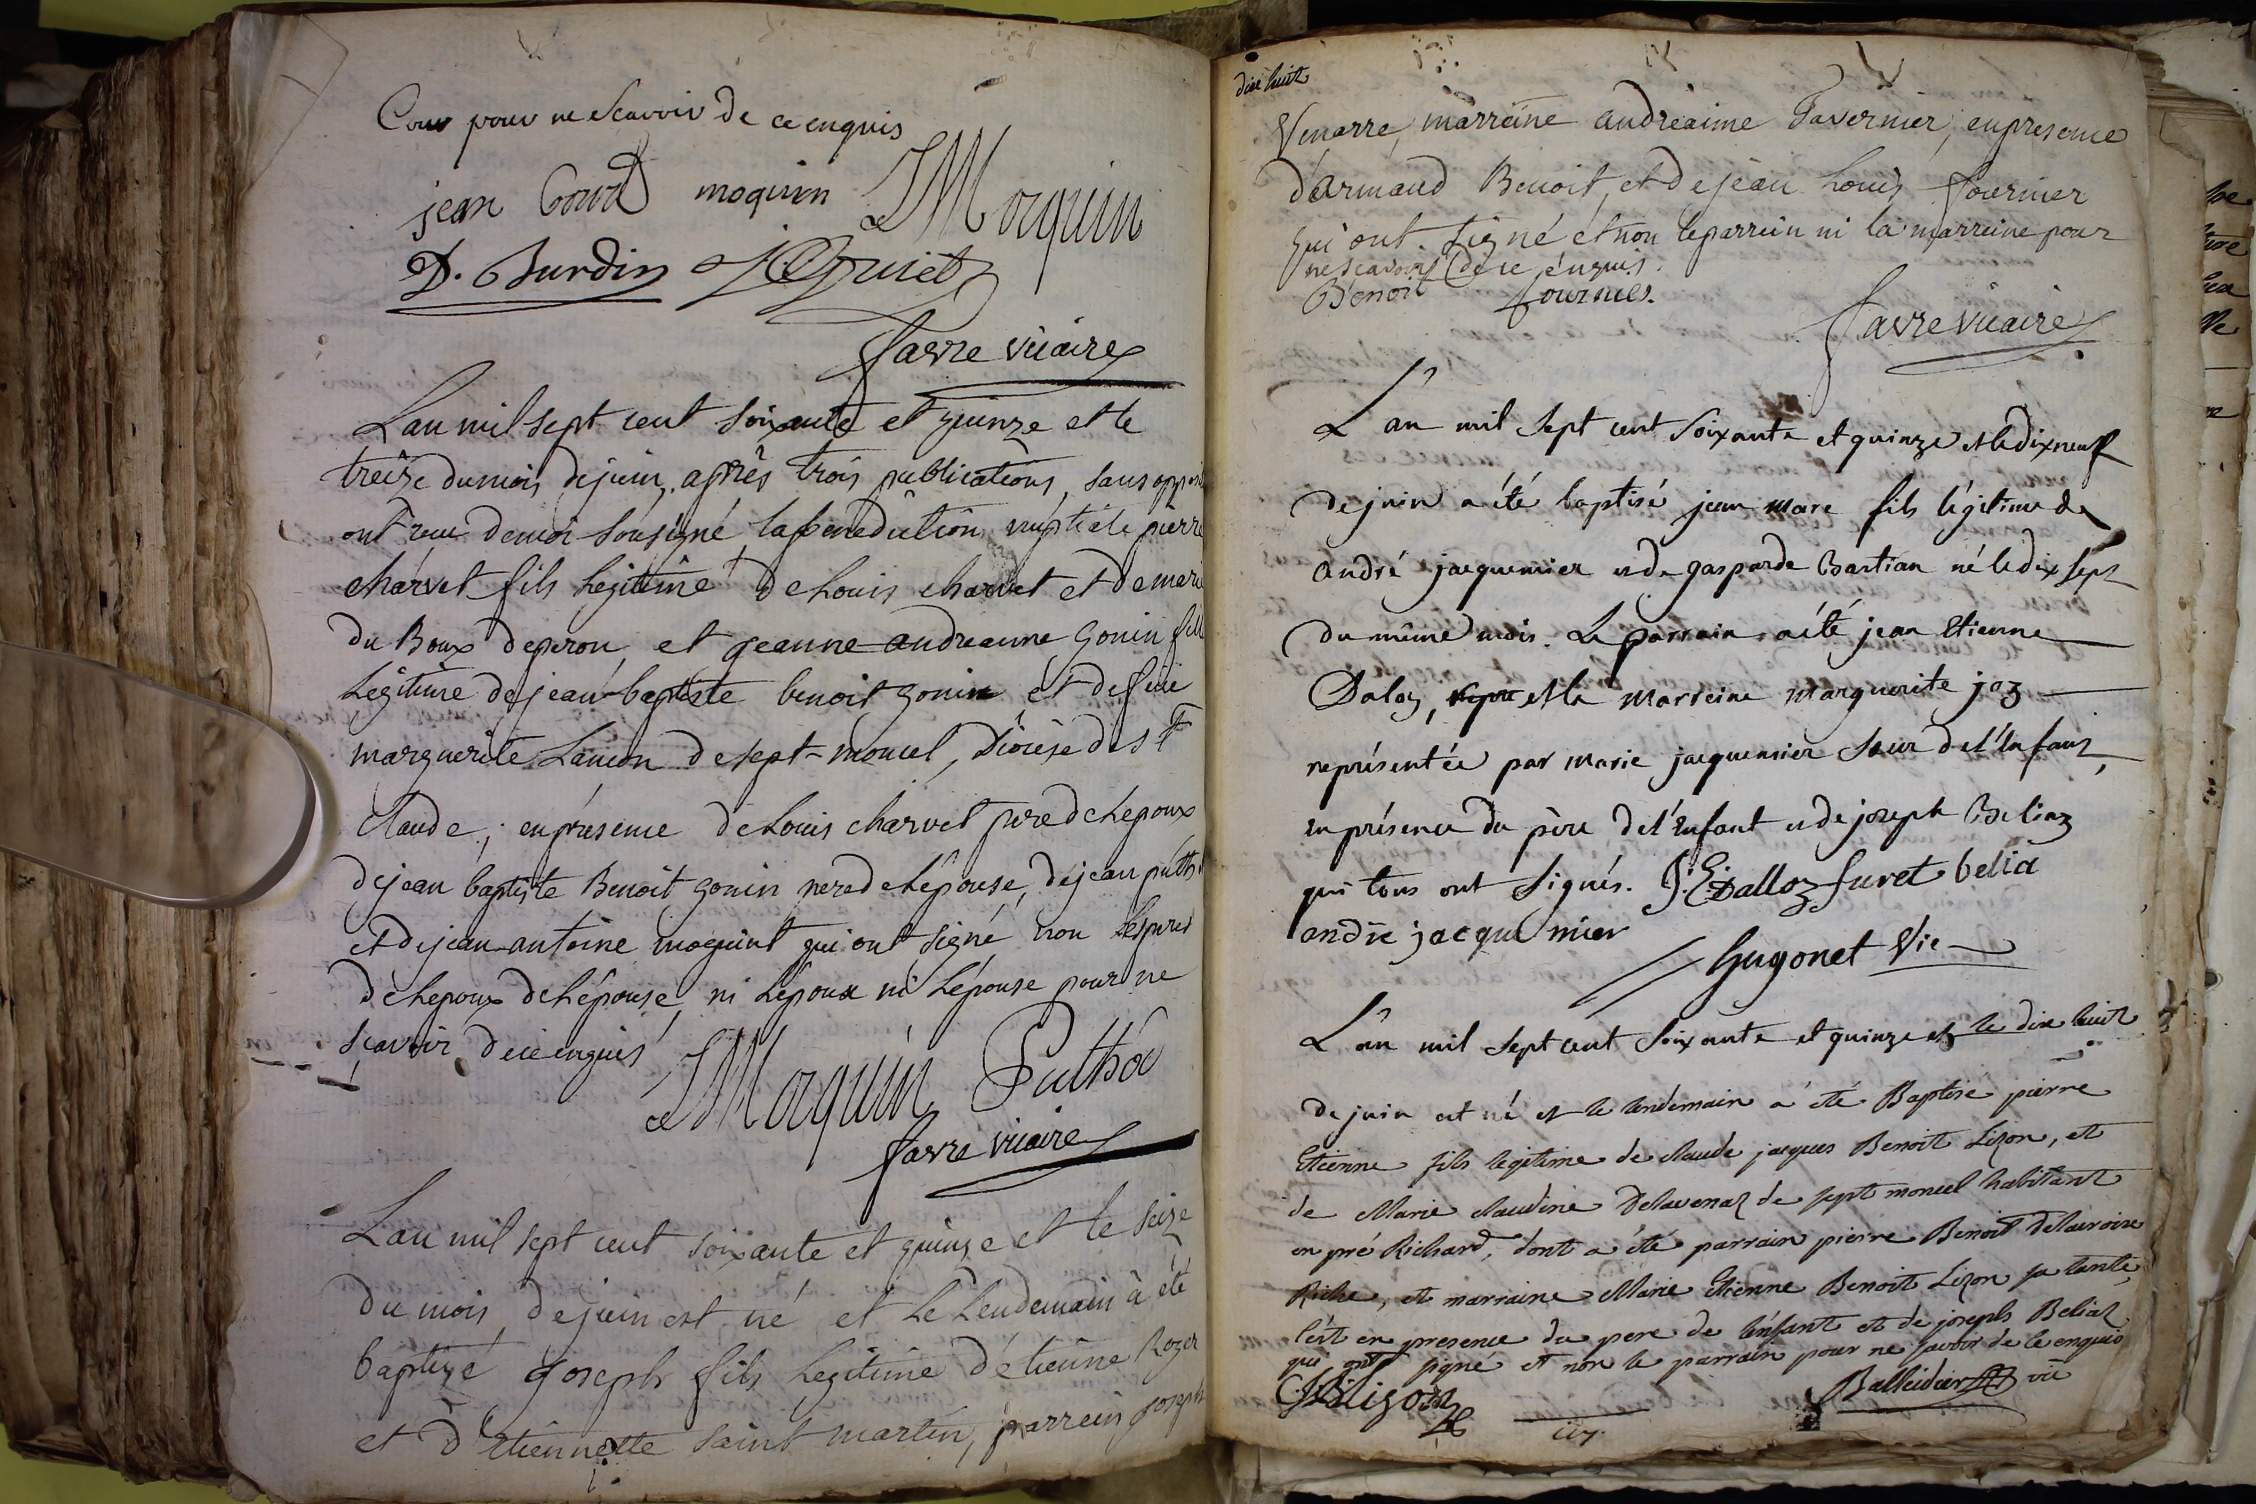 Cour pour ne scavoir de ce enquis
jean Gour moquin JMoquin
D. Burdin
favre vicaire
Lan mil sept cent soixante et quinze et le
treize du mois de juin, après trois publications, sans
ont recu de moi sousigné la benediction nuptiale pierre
charvet fils legitime de Louis charvet et de
du Boux et jeanne andreanne gonin fille
Legitime de jean-baptiste benoit gonin et de feüe
marguerite Lancon de sept-moncel, Diocèse de st
Claude; en présence de Louis charvet père de Lepoux
de jean baptiste Benoit gonin pere de Lépouse, de jean
et de jean-antoine moquint qui ont signé non les peres
de Lepoux de Lépouse, ni Lépoux ni Lépouse pour ne
scavoir de ce enquis
JMoquin Puthod
favre vicaire
Lan mil sept cent soixante et quinze et le seize
du mois de juin est né et le Lendemain à été
baptizé joseph fils Legitime d'étienne Rozer
et d'Etiennette saint martin, parrein joseph
dixe huit
marreine andréaime Tavernier, en presence
d'armand Benoit, et de jean Louis fournier
qui ont signé et non le parrein ni la marreine pour
ne scavoir de ce enquis.
Benoit fournier.
favre vicaire
L'an mil sept cent soixante et quinze et le dix neuf
de juin a été baptisé jean marc fils légitime de
andré jacquemier et de gasparde Bastian né le dix sept
du même mois. Le parrain a été jean Etienne
Daloz, et la marreine marguerite jaz
représentée par marie jacquemier sœur de l'enfant,
en présence du père de l'enfant et de joseph Beliaz
qui tous ont signés. J. E. Dalloz furet belia
andre jacquemier
Hugonet Vic
L'an mil sept cent soixante et quinze et le dix huit
de juin est né et le lendemain a été Baptisé pierre
Etienne fils legitime de claude jacques Benoit Lizon, et
de Marie claudine Delavenaz de sept moncel habitant
en pré Richard, dont a été parrain pierre Benoit
Riche, et marraine Marie Etienne Benoit Lizon sa tante,
c'est en presence du pere de l'enfant et de joseph Beliaz
qui ont signé et non le parrain pour ne savoir de ce enquis
Balleidier vic